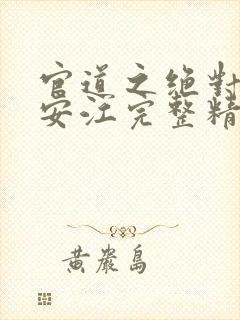 官道之绝对
安江完整精
黄岩島